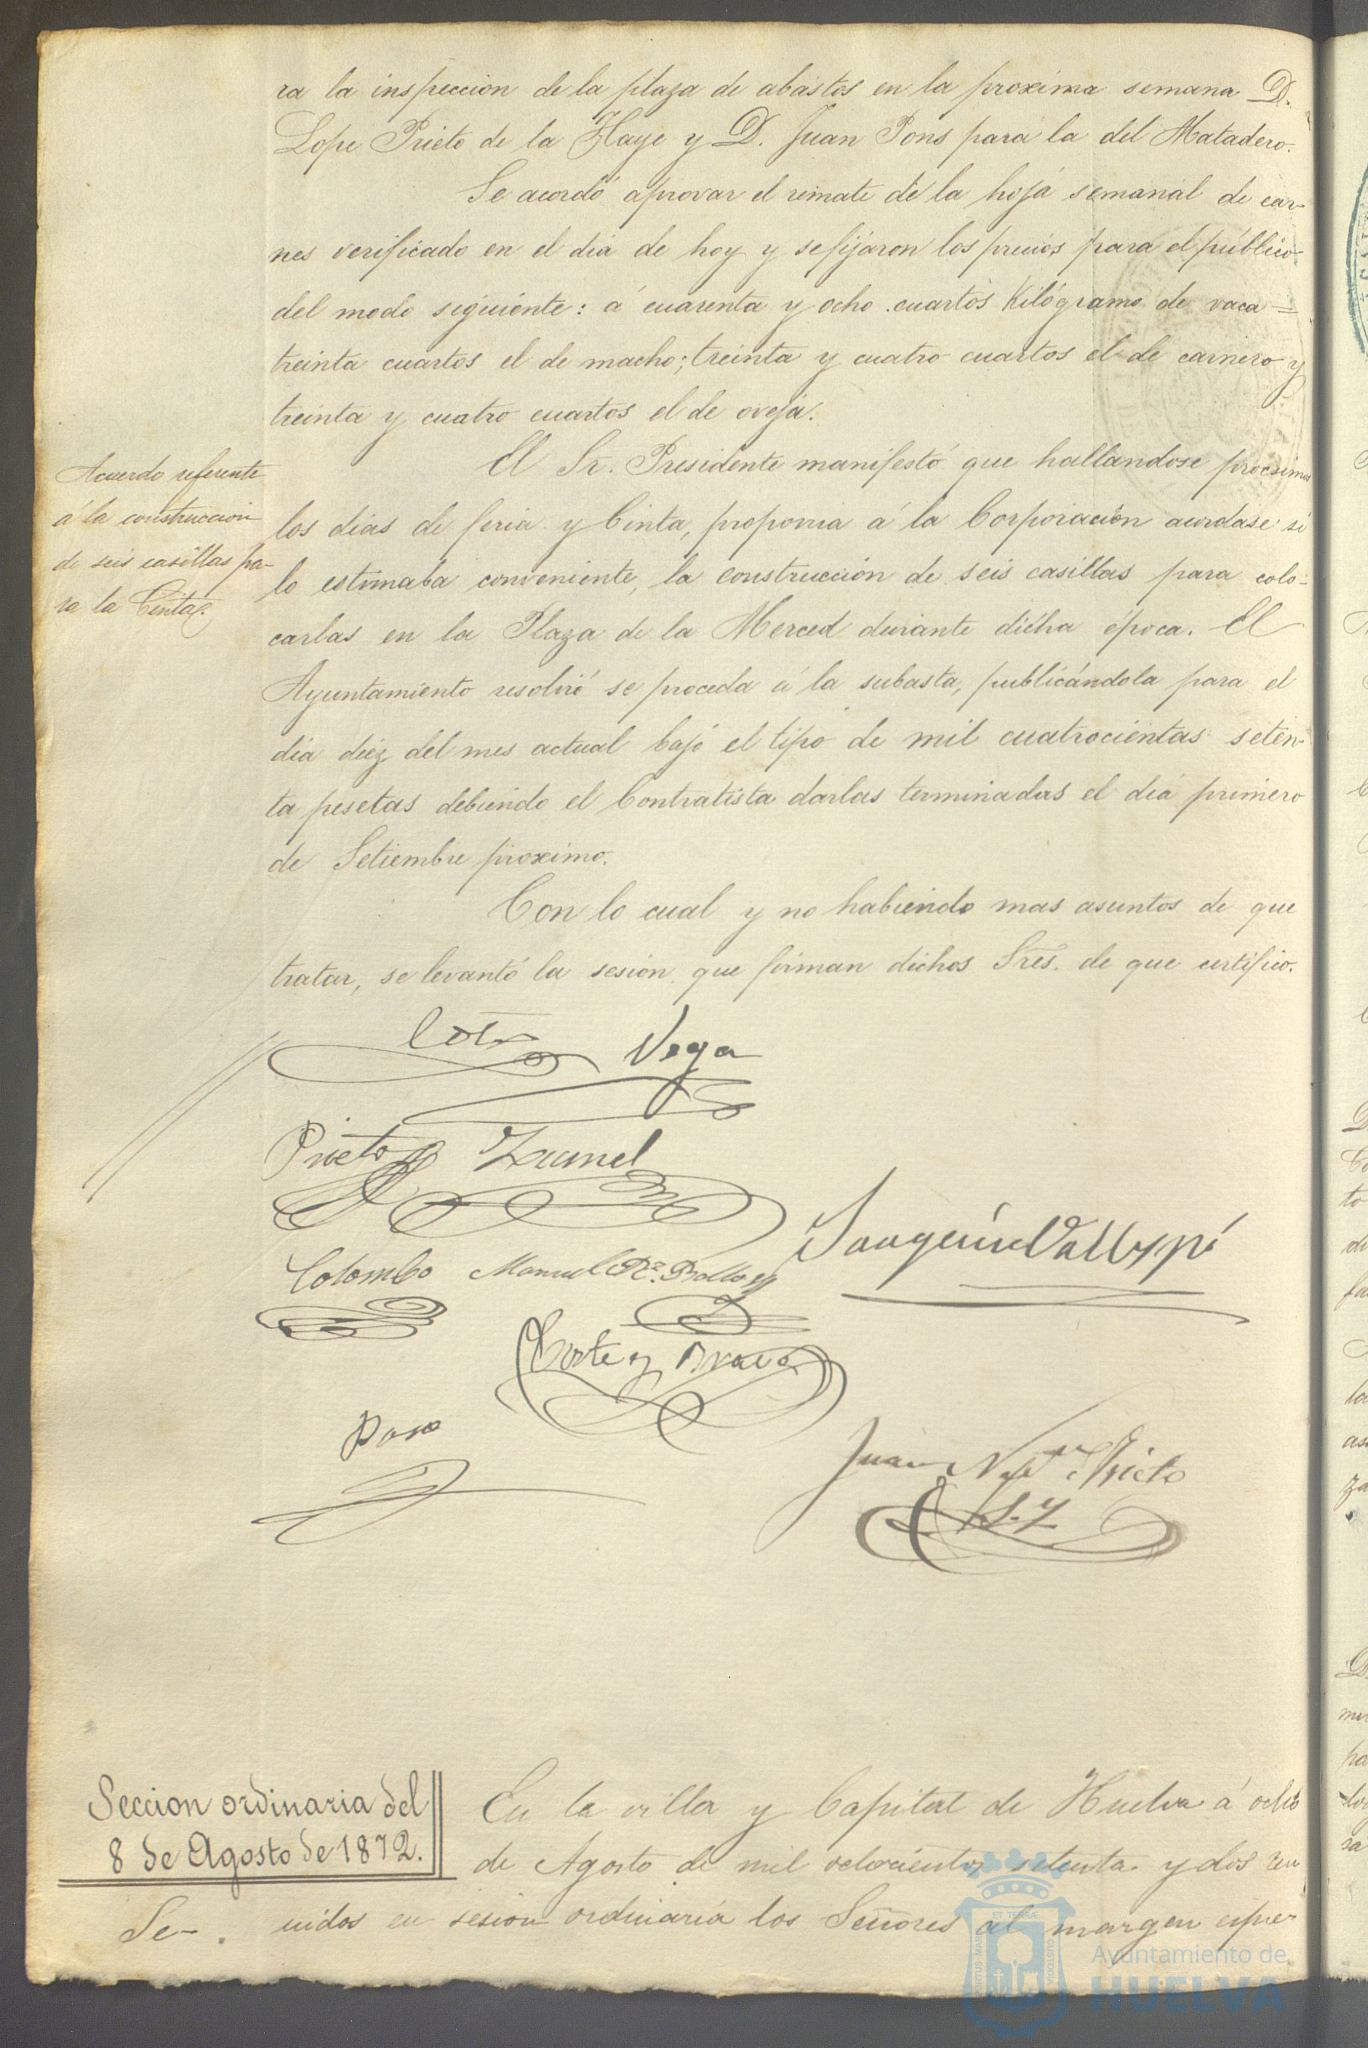 ra la inspeccion de la plaza de abastos en la proxima semana D.
Lope Prieto de la Haye y D. Juan Pons para la del Matadero.
Se acordó aprovar el remate de la hoja semanal de car-
nes verificado en el dia de hoy y se fijaron los precios para el público
del modo siguiente: á cuarenta y ocho cuartos Kilógramo de vaca =
treinta cuartos el de macho; treinta y cuatro cuartos el de carnero y
treinta y cuatro cuartos el de oveja.
Acuerdo referente
á la construccion
de seis casillas pa-
ra la Cinta.
El Sr. Presidente manifestó que hallandose procsimos
los dias de feria y Cinta, proponia a la Corporación acordase si
lo estimaba conveniente, la construcción de seis casillas para colo-
carlas en la Plaza de la Merced durante dicha época. El
Ayuntamiento resolvió se proceda á la subasta, publicándola para el
dia diez del mes actual bajo el tipo de mil cuatrocientas seten-
ta pesetas debiendo el Contratista darlas terminadas el dia primero
de Setiembre próximo.
Con lo cual y no habiendo mas asuntos de que
tratar, se levantó la sesión que firman dichos Sres. de que certifico.
Vega
Prieto
Colombo Manuel
Cortes y Bravo
Juan Prieto
Seccion ordinaria del
8 de Agosto de 1872.
En la villa y Capital de Huelva á ocho
de Agosto de mil ochocientos setenta y dos reu
Se-. nidos en sesion ordinaria los Señores al margen espre
Ayuntamiento de
HUELVA